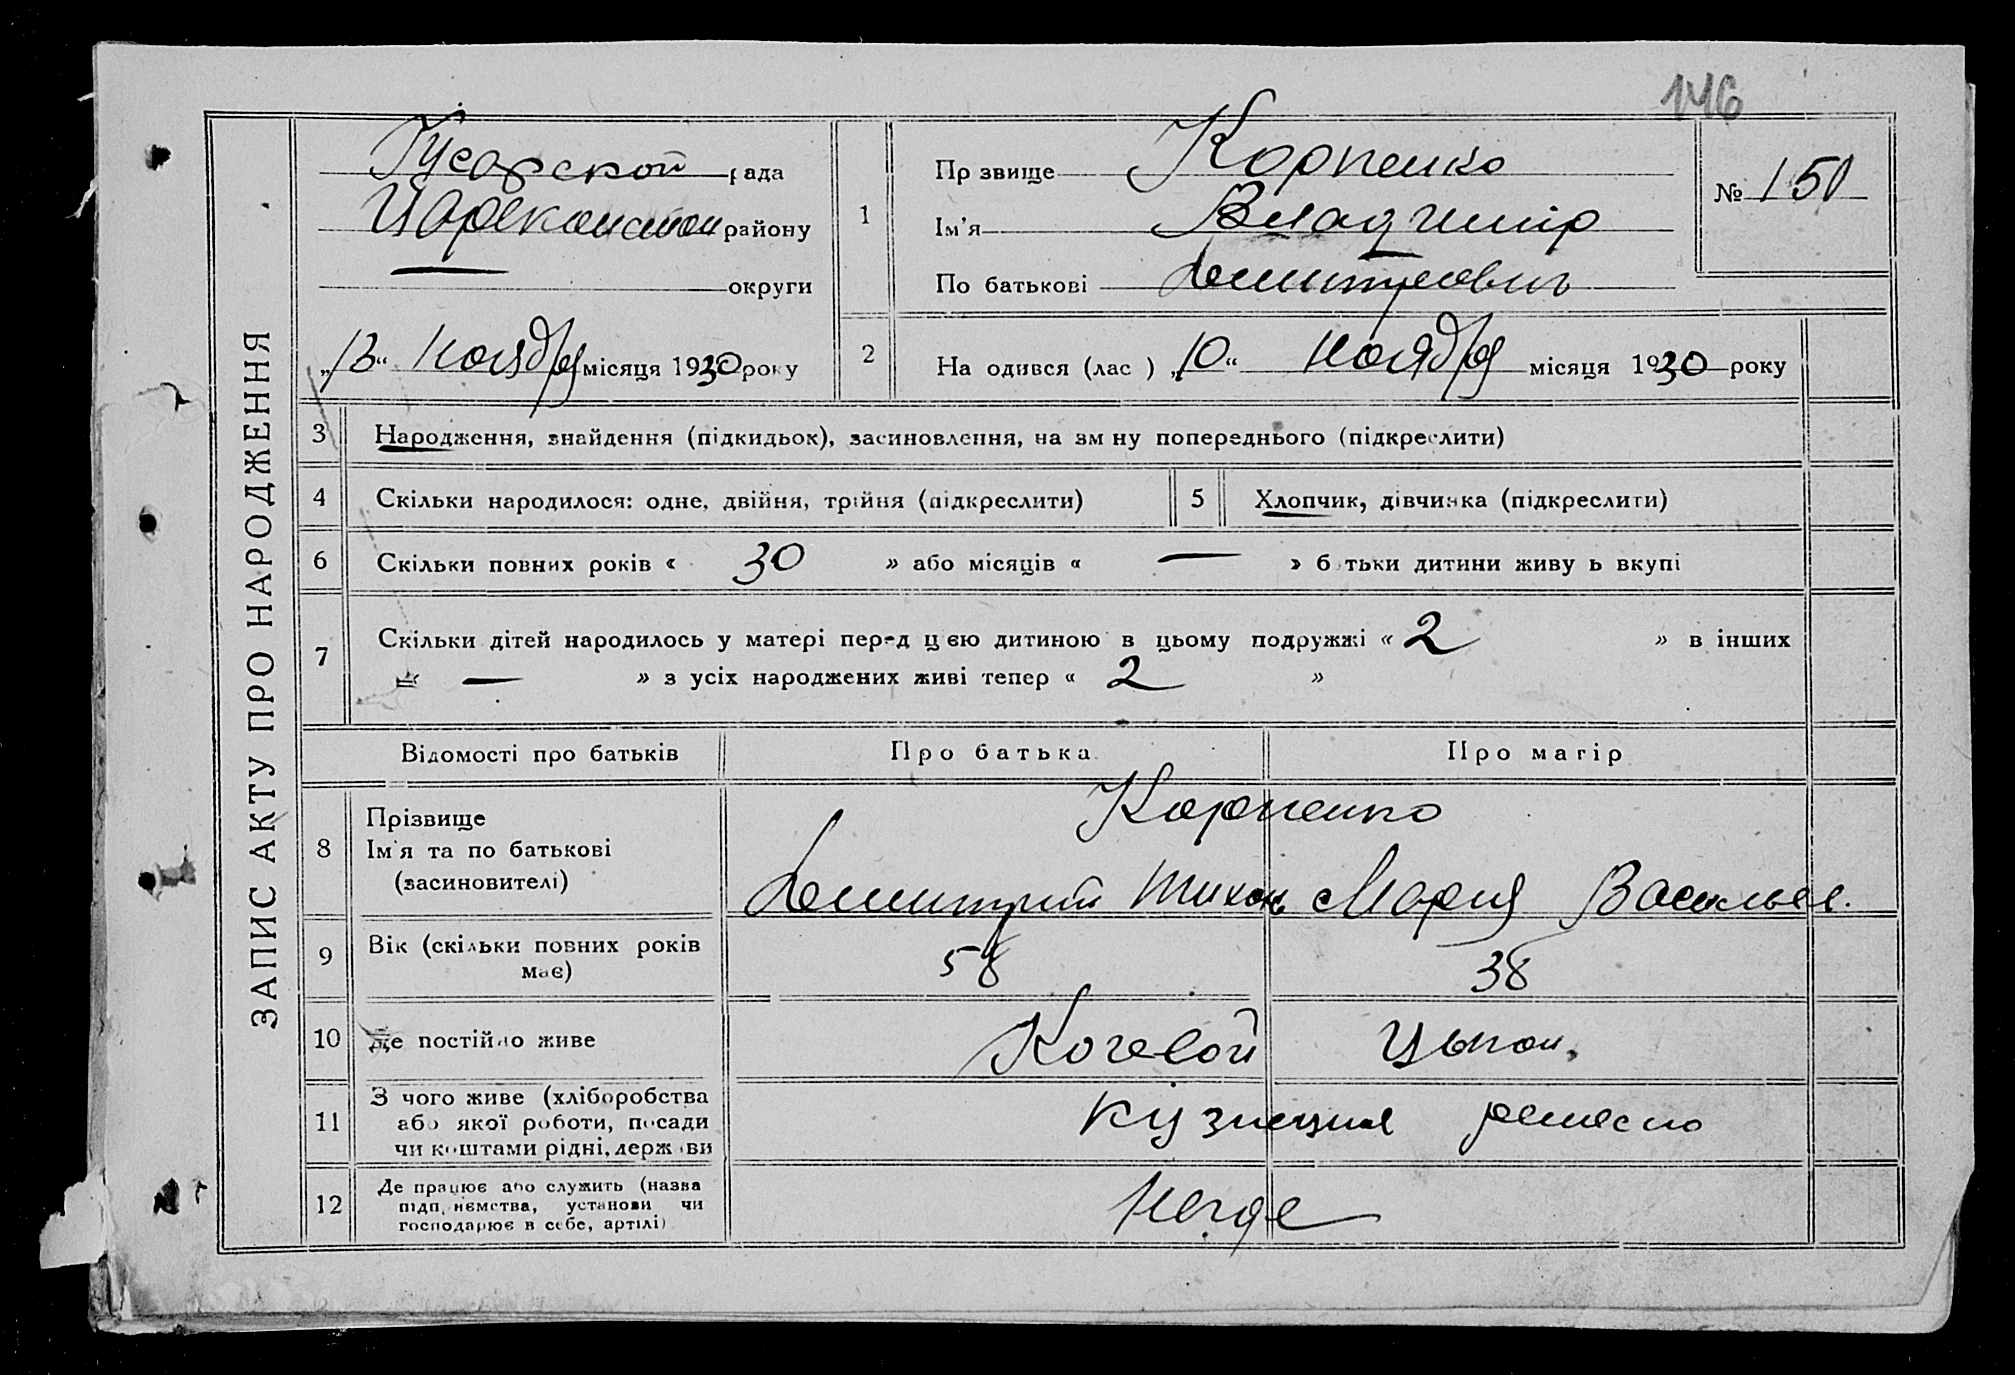 146
ЗАПИС АКТУ ПРО НАРОДЖЕННЯ
Гусарской рада
района району
округи
„13“ Ноября місяця 1930 року
1
Пр звище Корпенко
Ім'я Владимир
По батькові Дмитриевич
№ 150
2
На одився (лас ) „10“ Ноября місяця 1930 року
3 Народження, знайдення (підкидьок), засиновлення, на зм ну попереднього (підкреслити)
4 Скільки народилося: одне, двійня, трійня (підкреслити)
5 Хлопчик, дівчинка (підкреслити)
6 Скільки повних років « 30 » або місяців « — » б тьки дитини живу ь вкупі
7 Скільки дітей народилось у матері перед цею дитиною в цьому подружжі « 2 » в інших
« — » з усіх народжених живі тепер « 2 »
Відомості про батьків Про батька Про матір
8 Прізвище
Ім'я та по батькові
(засиновителі)
Корпенко
Дмитрий Тихон Мария Васильев.
9 Вік (скільки повних років
має)
58 38
10 Де постійно живе Кочевой Цыган.
11 З чого живе (хліборобства
або якої роботи, посади
чи коштами рідні, держави
кузнецкия ремесло
12 Де працює або служить (назва
підп, иємства, установи чи
господарює в себе, артілі)
Негде